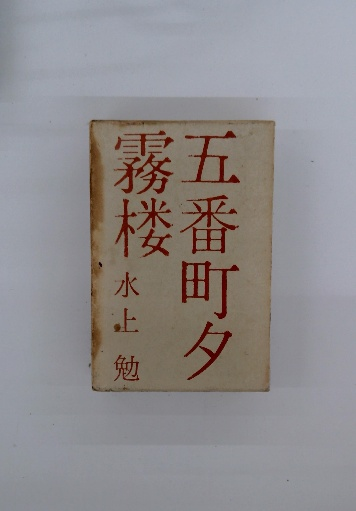 五番町夕
霧楼
水上 勉